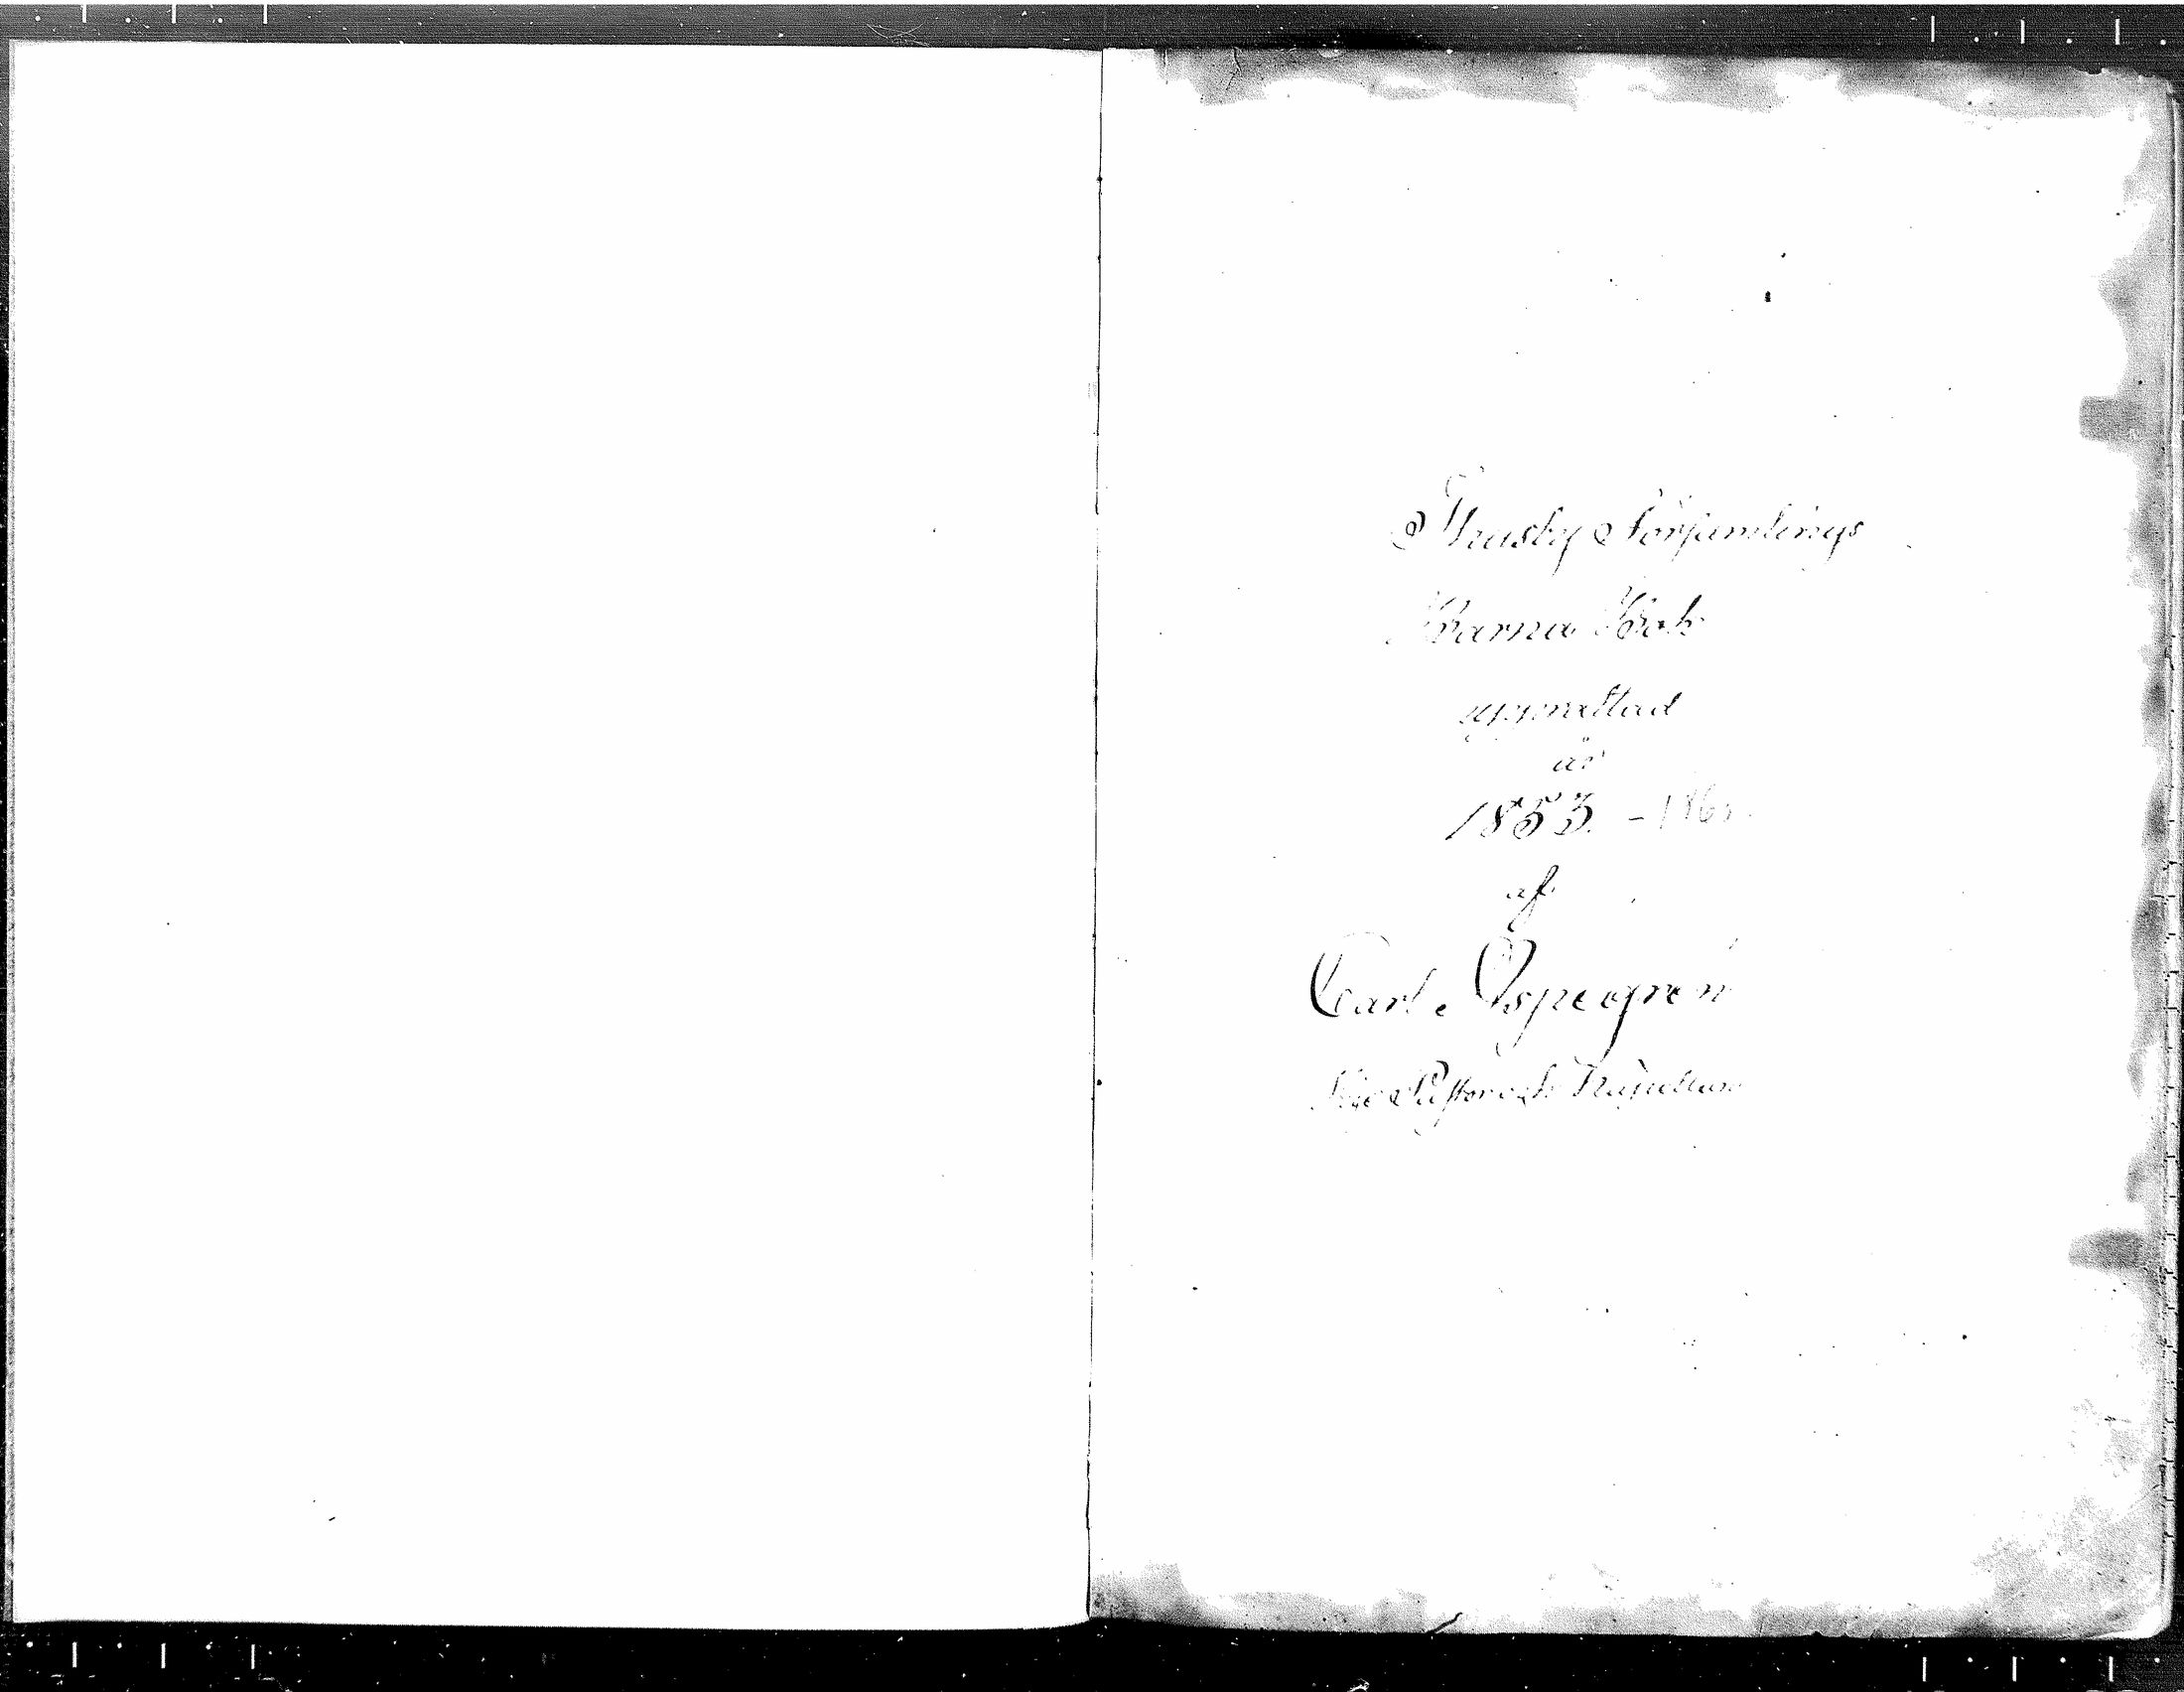 Thusby Församlings
Barna Bok
upprättad
år
1853. - 186
af
Carl Aspegrén
Vice Pastor och Kapellan